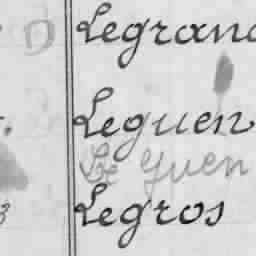 Legrand
Leguen
Le Yuen
Legros